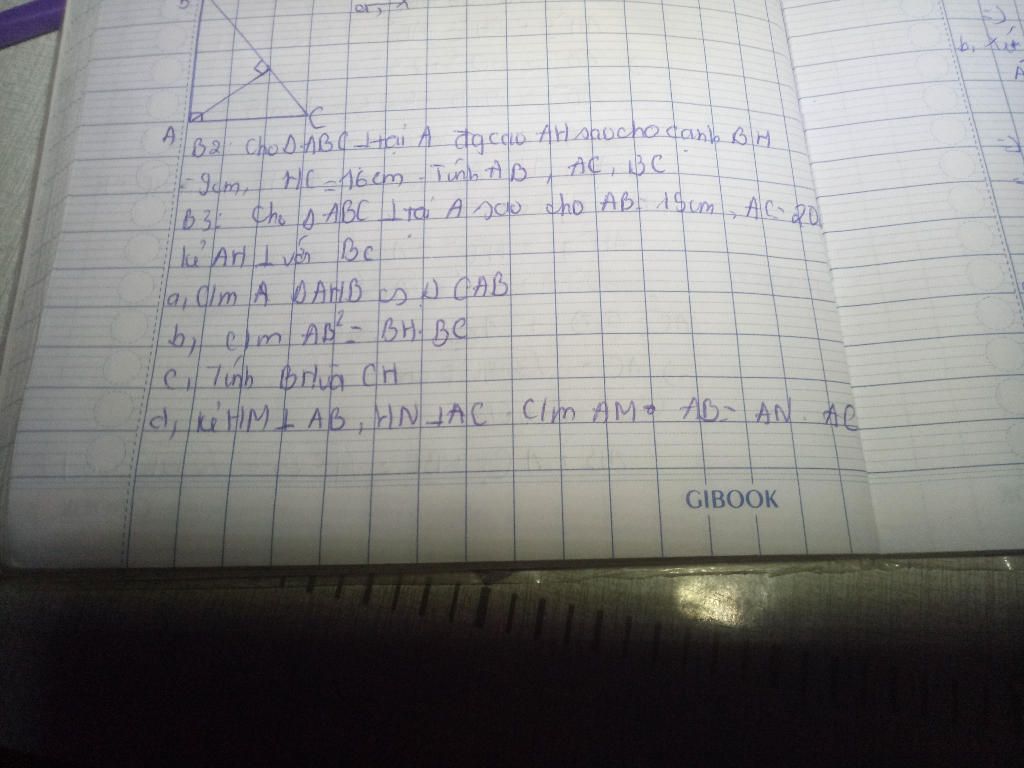 A C
B2: Cho Δ ABC ⊥ tại A đg cao AH sao cho cạnh BH
= 9cm, HC = 16cm. Tính AB, AC, BC
B3: Cho Δ ABC ⊥ tại A sao cho AB= 15cm, AC= 20
kẻ AH ⊥ với BC
a, C/m A Δ AHB ∽ Δ CAB
b, c/m AB² = BH. BC
c, Tính BH và CH
d, kẻ HM ⊥ AB, HN ⊥ AC C/m AM. AB= AN. AC
GIBOOK